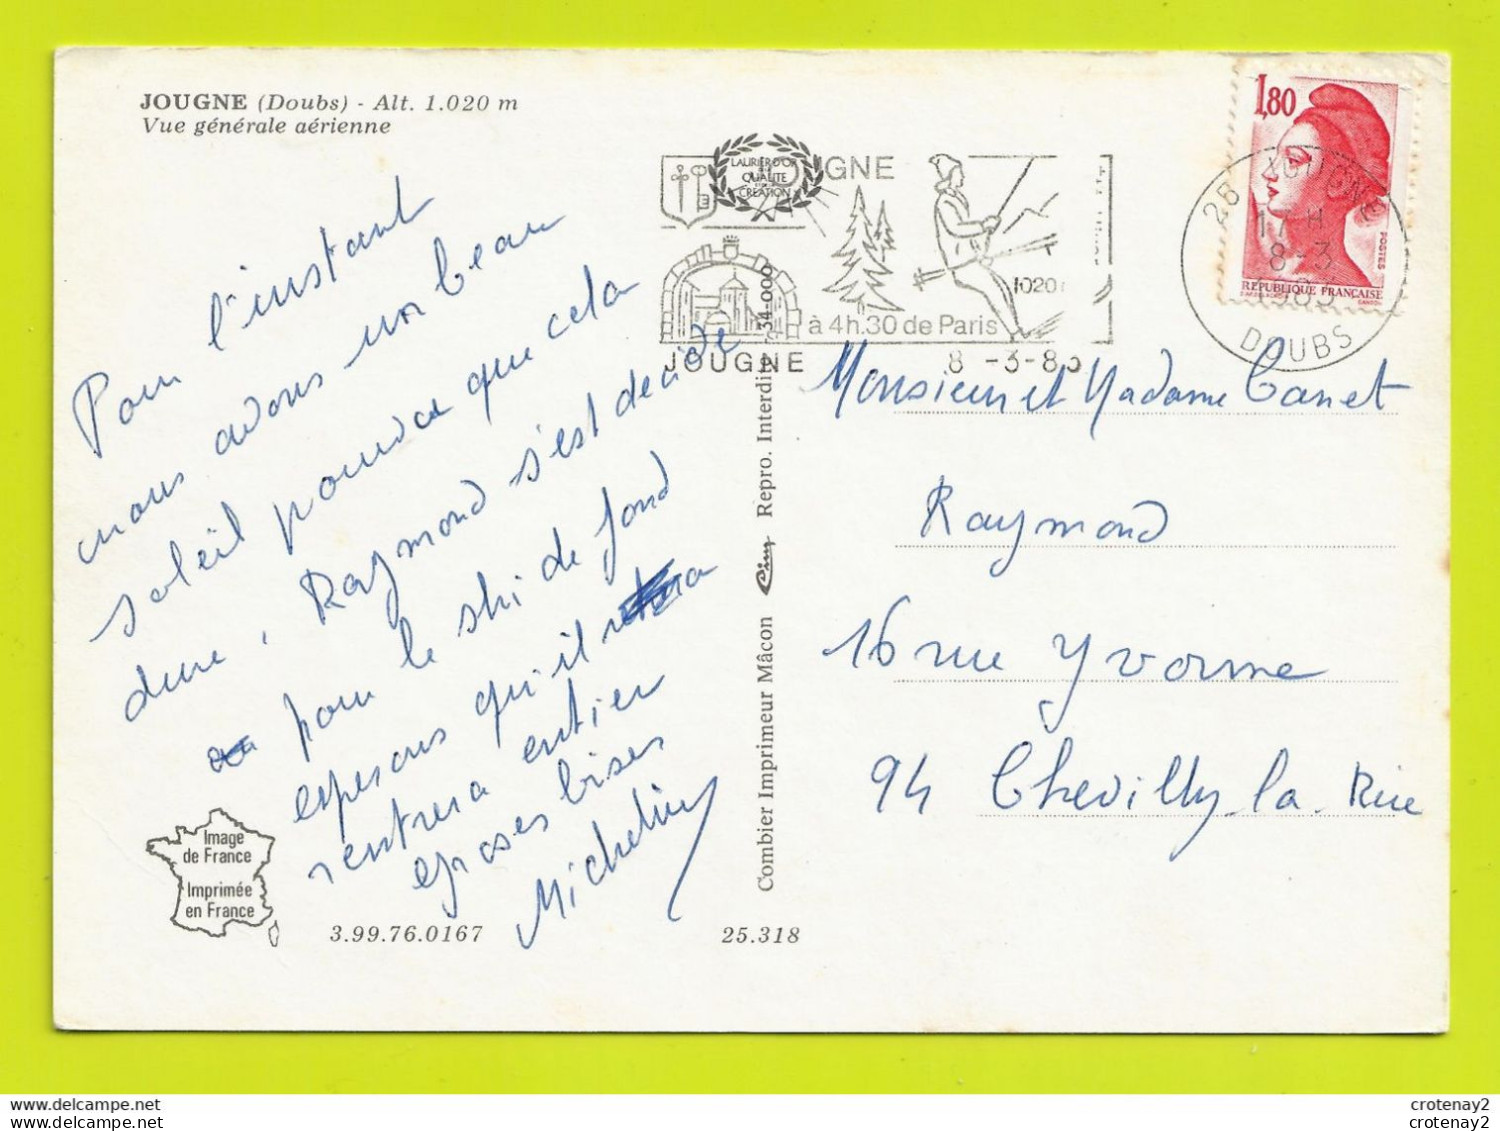 JOUGNE (Doubs) - Alt. 1.020 m
Vue générale aérienne
Pour l'instant
nous avons un beau
soleil pourvu que cela
dure, Raymond s'est decidé
pour le ski de fond
esperons qu'il
rentrera entier
grosses bises
Micheline
Image
de France
Imprimée
en France
3.99.76.0167
25.318
Combier Imprimeur Mâcon Cim Repro. Interdite 34-000
LAURIER D'OR
QUALITÉ
CRÉATION
UGNE
1020
à 4h.30 de Paris
JOUGNE 8 -3-85
1,80
POSTES
REPUBLIQUE FRANÇAISE
25 JOUGNE
17 H
8-3
1985
DOUBS
Monsieur et Madame Canet
Raymond
16 rue Yvonne
94 Chevilly la Rue
crotenay2
crotenay2
crotenay2
crotenay2